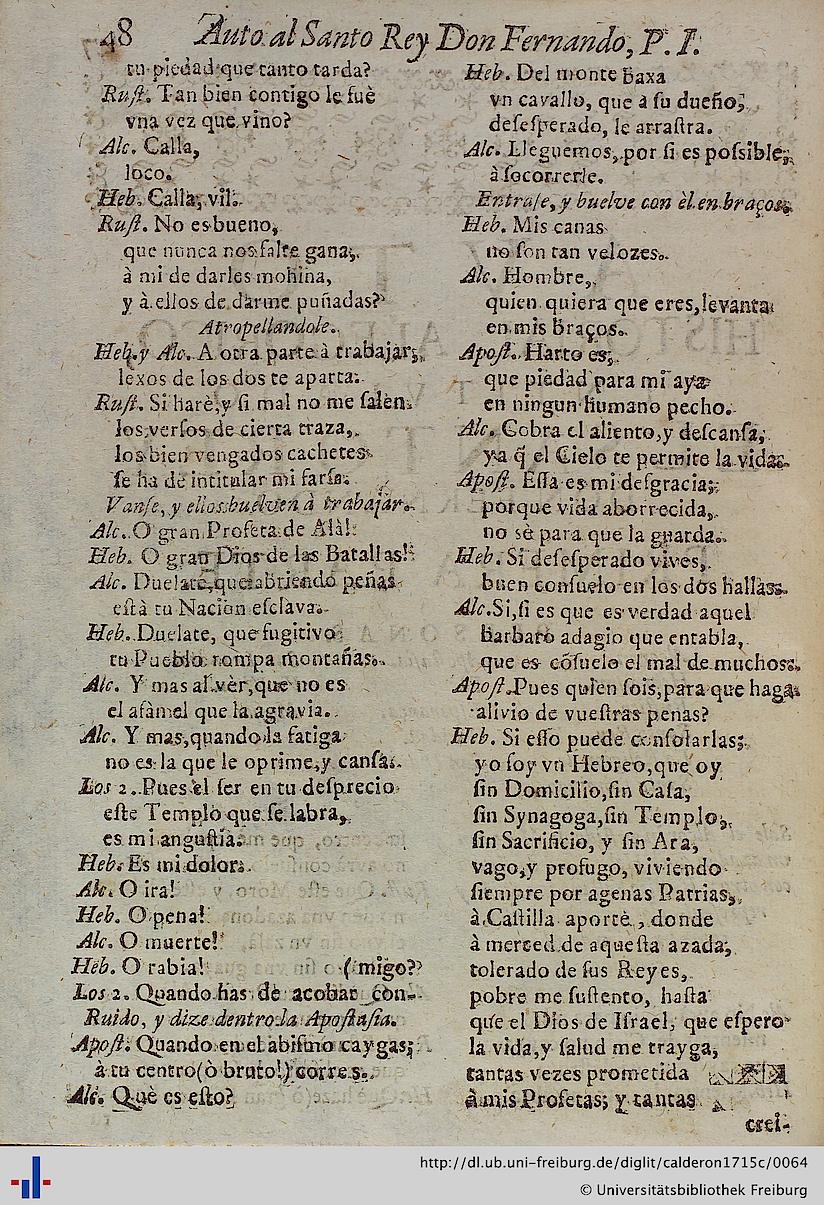 48 Auto al Santo Rey Don Fernando, P. I.
tu piedad que tanto tarda?
Ruſt. Tan bien contigo le fuè
vna vez que vino?
Alc. Calla,
loco.
Heb. Calla, vil.
Ruſt. No es bueno,
que nunca nos falte gana,
à mi de darles mohina,
y à ellos de darme puñadas?
Atropellandole.
Heb. y Alc. A otra parte à trabajar;
lexos de los dos te aparta.
Ruſt. Si harè, y ſi mal no me ſalen
los verſos de cierta traza,
los bien vengados cachetes
ſe ha de intitular mi farſa.
Vanſe, y ellos buelven à trabajar.
Alc. O gran Profeta de Alà!
Heb. O gran Dios de las Batallas!
Alc. Duelate, que abriendo peñas
eſtà tu Nacion eſclava.
Heb. Duelate, que fugitivo
tu Pueblo rompa montañas.
Alc. Y mas al vèr, que no es
el afàn el que la agravia.
Alc. Y mas, quando la fatiga
no es la que le oprime, y canſa.
Los 2. Pues el ſer en tu deſprecio
eſte Templo que ſe labra,
es mi anguſtia.
Heb. Es mi dolor.
Alc. O ira!
Heb. O pena!
Alc. O muerte!
Heb. O rabia! (migo?
Los 2. Quando has de acobar con-
Ruido, y dize dentro la Apoſtaſia.
Apoſt. Quando en el abiſmo caygas;
à tu centro (ò bruto!) corres.
Alc. Què es eſto?
Heb. Del monte baxa
vn cavallo, que à ſu dueño,
deſeſperado, le arraſtra.
Alc. Lleguemos, por ſi es poſsible,
à ſocorrerle.
Entraſe, y buelve con èl en braços.
Heb. Mis canas
no ſon tan velozes.
Alc. Hombre,
quien quiera que eres, levanta
en mis braços.
Apoſt. Harto es,
que piedad para mi aya
en ningun humano pecho.
Alc. Cobra el aliento, y deſcanſa,
ya q̃ el Cielo te permite la vida.
Apoſt. Eſſa es mi deſgracia;
porque vida aborrecida,
no sè para que la guarda.
Heb. Si deſeſperado vives,
buen conſuelo en los dos hallas.
Alc. Si, ſi es que es verdad aquel
barbaro adagio que entabla,
que es cõſuelo el mal de muchos.
Apoſt. Pues quien ſois, para que haga
alivio de vueſtras penas?
Heb. Si eſſo puede conſolarlas;
yo ſoy vn Hebreo, que oy
ſin Domicilio, ſin Caſa,
ſin Synagoga, ſin Templo,
ſin Sacrificio, y ſin Ara,
vago, y profugo, viviendo
ſiempre por agenas Patrias,
à Caſtilla aportè, donde
à merced de aqueſta azada,
tolerado de ſus Reyes,
pobre me ſuſtento, haſta
que el Dios de Iſrael, que eſpero
la vida, y ſalud me trayga,
tantas vezes prometida
à mis Profetas; y tantas
crei-
http://dl.ub.uni-freiburg.de/diglit/calderon1715c/0064
© Universitätsbibliothek Freiburg